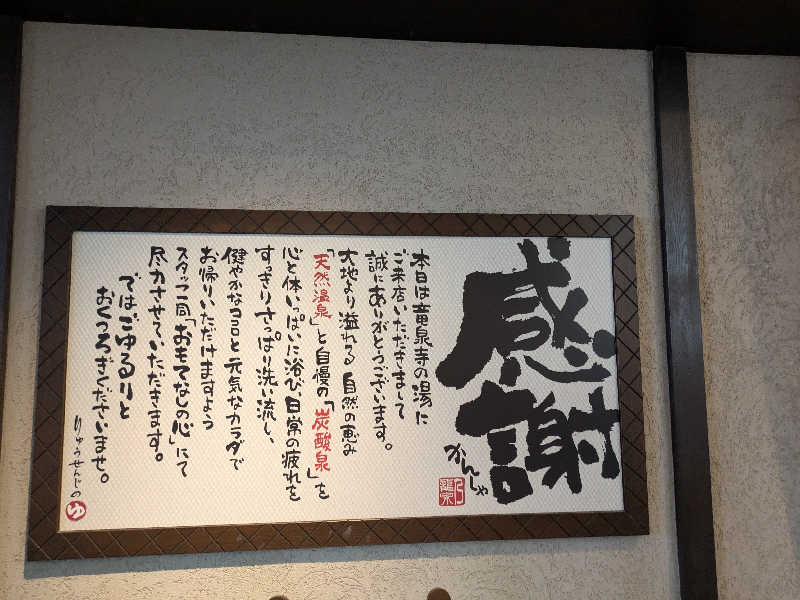 感謝
かんしゃ
本日は竜泉寺の湯に
ご来店いただきまして
誠にありがとうございます。
大地より溢れる自然の恵み
「天然温泉」と自慢の「炭酸泉」を
心と体いっぱいに浴び、日常の疲れを
すっきりさっぱり洗い流し、
健やかなココロと元気なカラダで
お帰りいただけますよう
スタッフ一同「おもてなしの心」にて
尽力させていただきます。
ではごゆるりと
おくつろぎくださいませ。
りゅうせんじの
ゆ